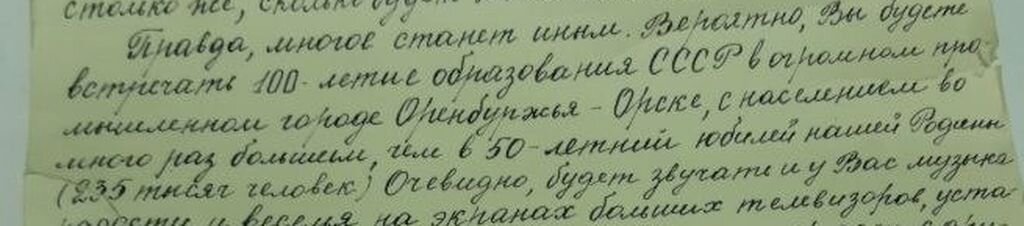 столько же, сколько будет
Правда, многое станет иным. Вероятно, Вы будете
встречать 100-летие образования СССР в огромном про-
мышленном городе Оренбуржья - Орске, с населением во
много раз большем, чем в 50-летний юбилей нашей Родины
(235 тысяч человек) Очевидно, будет звучать и у Вас музыка
радости и веселья на экранах больших телевизоров, уста-